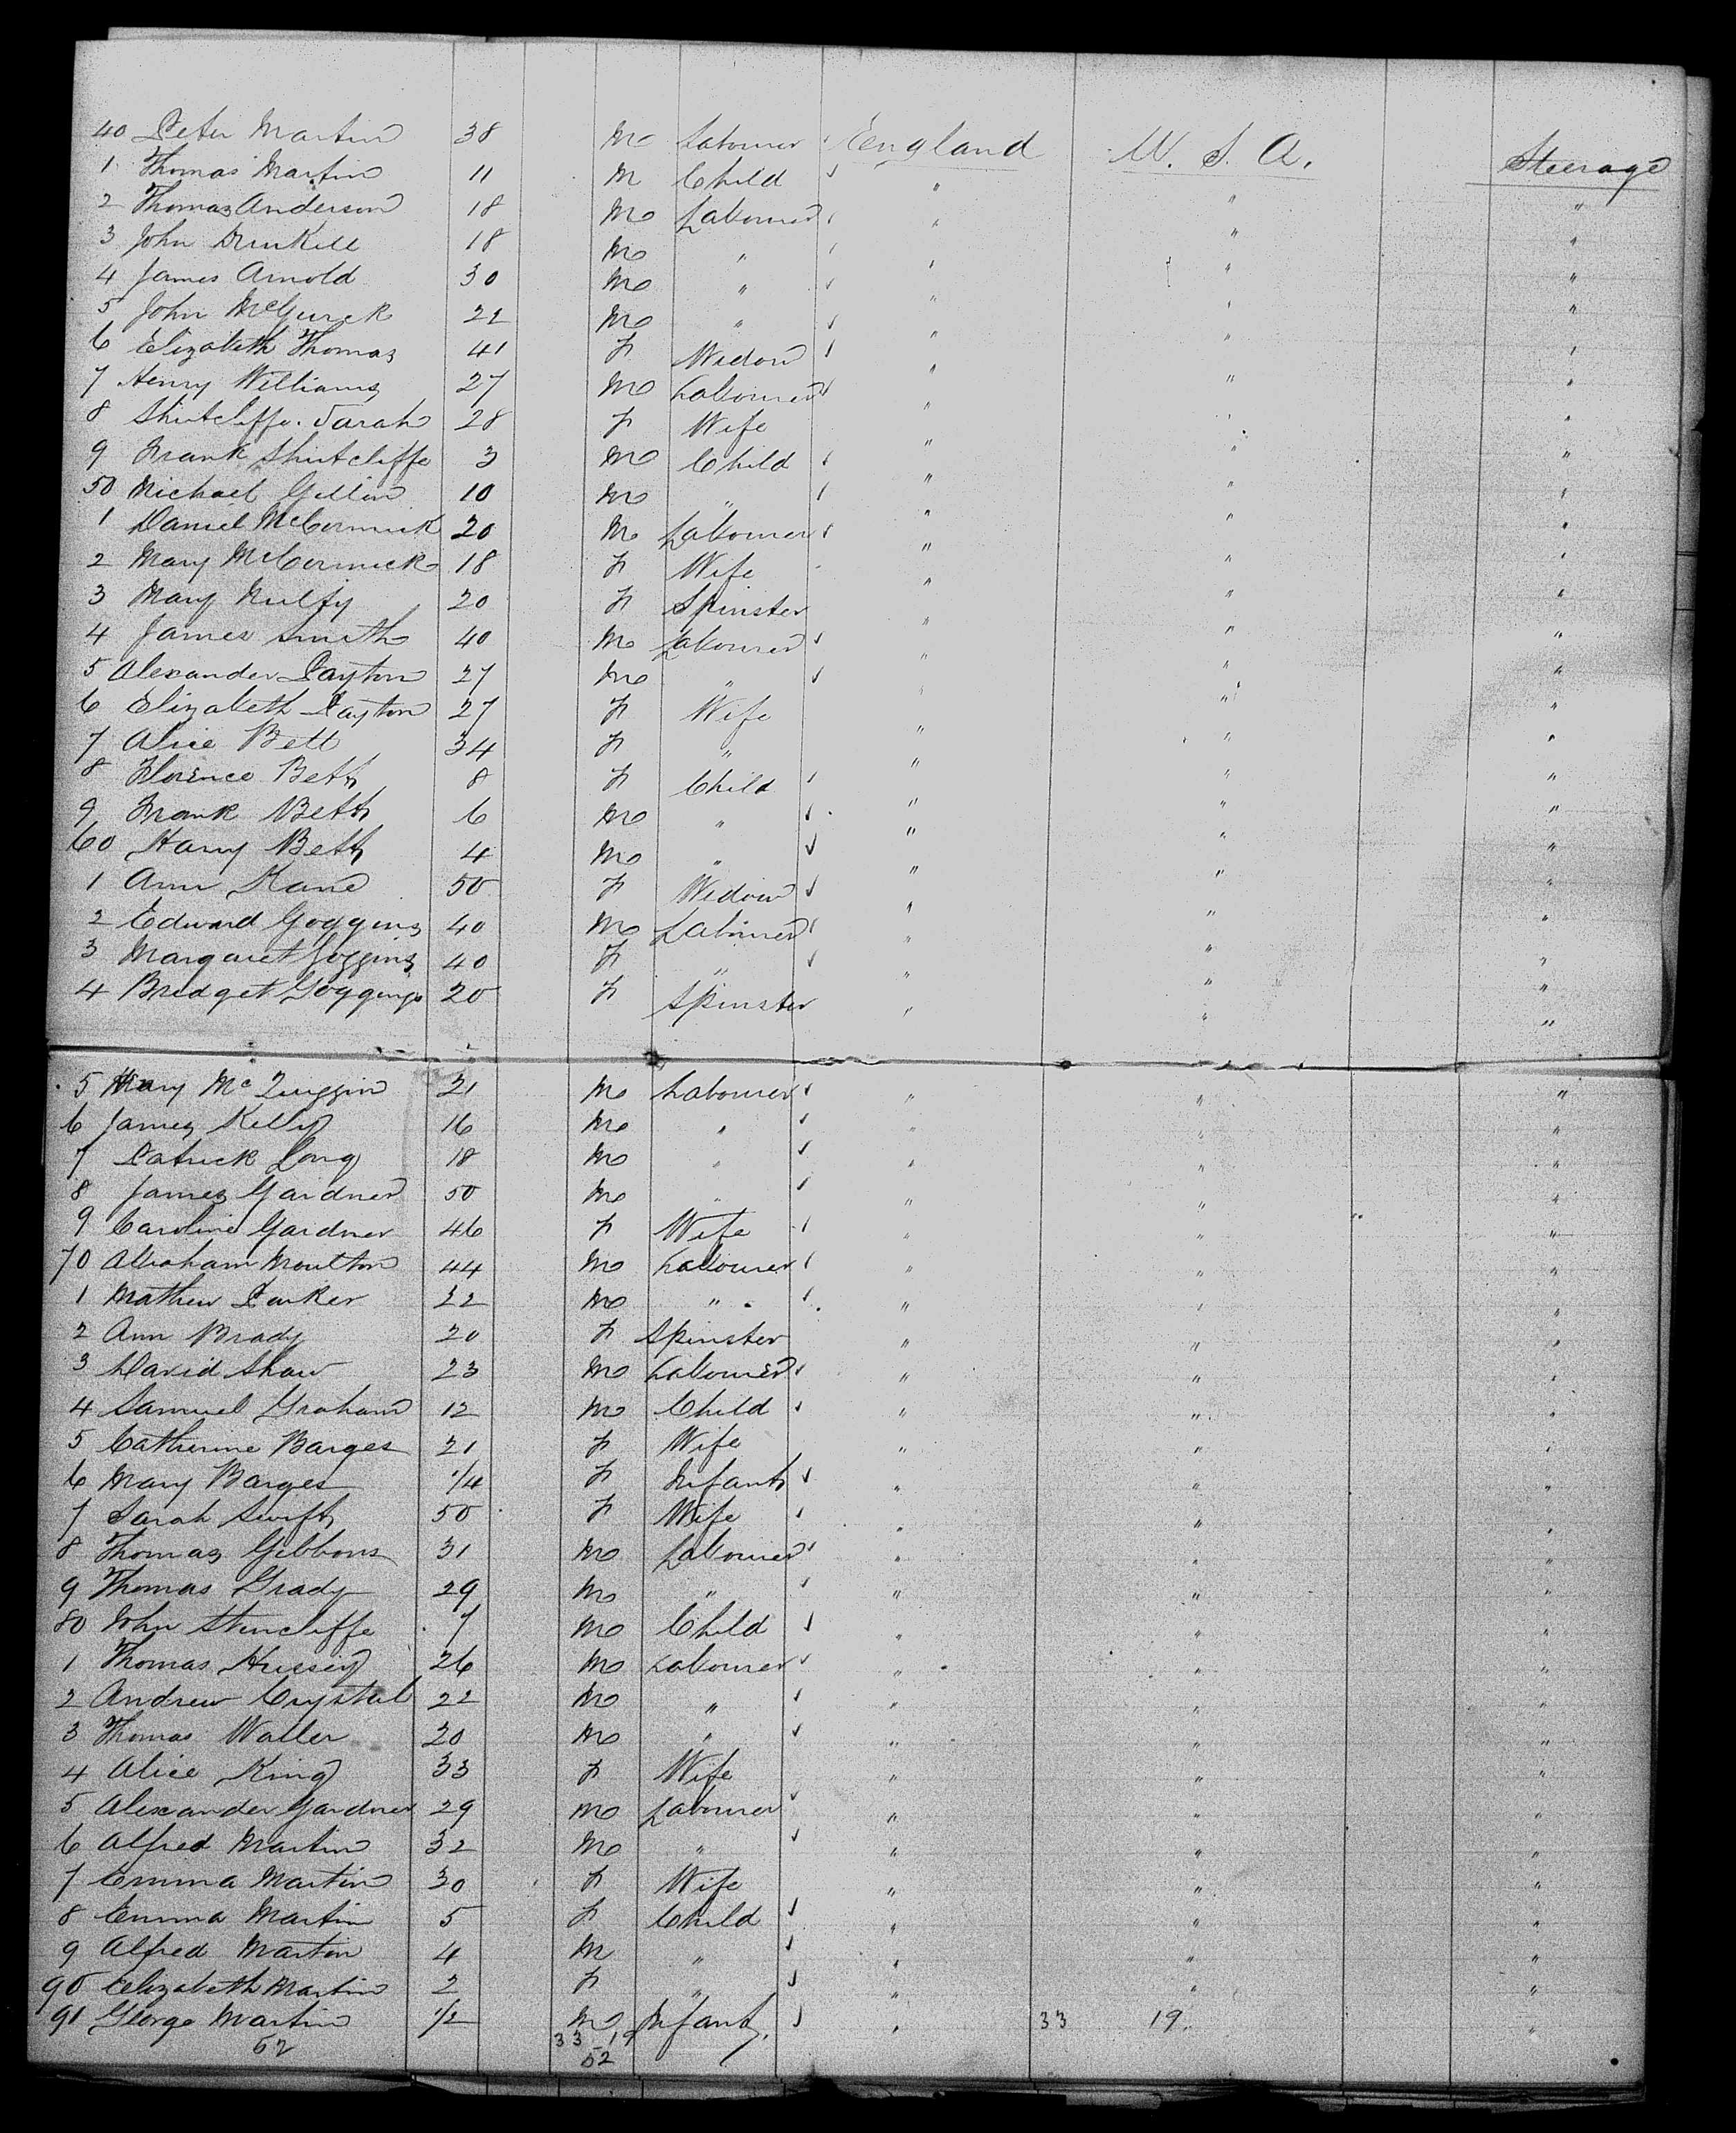 40 Peter Martin 38 M Labourer England U. S. A. Steerage
1 Thomas Martin 11 M Child " " "
2 Thomas Anderson 18 M Labourer " " "
3 John 18 M " " " "
4 James Arnold 30 M " " " "
5 John McGurck 22 M " " " "
6 Elizabeth Thomas 41 F Widow " " "
7 Henry Williams 27 M Labourer " " "
8 Shutcliffe. Sarah 28 F Wife " " "
9 Frank Shutcliffe 3 M Child " " "
50 Michael 10 M " " " "
1 Daniel McCormick 20 M Labourer " " "
2 Mary McCormick 18 F Wife " " "
3 Mary 20 F Spinster " " "
4 James Smith 40 M Labourer " " "
5 Alexander Payton 27 M " " " "
6 Elizabeth Payton 27 F Wife " " "
7 Alice Bett 34 F " " " "
8 Florence Bett 8 F Child " " "
9 Frank Bett 6 M " " " "
60 Harry Bett 4 M " " " "
1 Ann Kane 50 F Widow " " "
2 Edward Goggins 40 M Labourer " " "
3 Margaret Goggins 40 F " " " "
4 Bridget Goggings 20 F Spinster " " "
5 McQuiggin 21 M Labourer " " "
6 James Kelly 16 M " " " "
7 Patrick Long 18 M " " " "
8 James Gardner 50 M " " " "
9 Caroline Gardner 46 F Wife " " "
70 Abraham Moulton 44 M Labourer " " "
1 Mathew Parker 22 M " " " "
2 Ann Brady 20 F Spinster " " "
3 David Shaw 23 M Labourer " " "
4 Samuel Graham 12 M Child " " "
5 Catherine Barges 21 F Wife " " "
6 Mary Barges 1/4 F Infant " " "
7 Sarah Swift 50 F Wife " " "
8 Thomas Gibbons 31 M Labourer " " "
9 Thomas Grady 29 M " " " "
80 John Stencliffe 7 M Child " " "
1 Thomas Hussey 26 M Labourer " " "
2 Andrew Crystal 22 M " " " "
3 Thomas Waller 20 M " " " "
4 Alice King 33 F Wife " " "
5 Alexander Gardner 29 M Labourer " " "
6 Alfred Martin 32 M " " " "
7 Emma Martin 30 F Wife " " "
8 Emma Martin 5 F Child " " "
9 Alfred Martin 4 M " " " "
90 Elizabeth Martin 2 F " " " "
91 George Martin 1/2 M Infant " 33 19. "
52 33 19
52